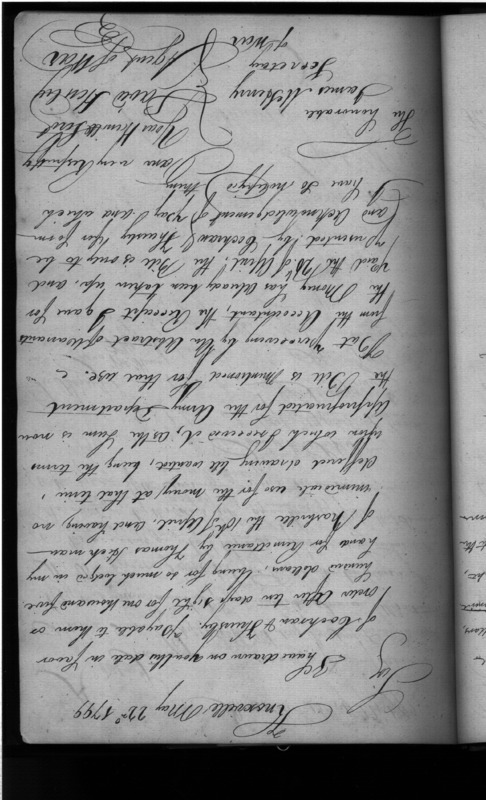 Knoxville May 22d 1799
Sir
I have drawn on you this date in favor
of Cochran & Thursby, payable to them or
order after ten days sight for one thousand five
hundred dollars, being for so much lodged in my
hands for Remittance by Thomas
of Nashville the 10th of April, and having no
immediate use for the money at that time,
deffered drawing till wanted, being the terms
upon which I received it, as the sum is now
appropriated for the Army Department
the Bill is mentioned for that use.
That perceiving by the Abstract of Warrants
from the Accountant, the Receipt I gave for
the Money has already been taken up, and
paid the 26th of April; the Bill is only to be
presented by Cochran & Thursby for form
and Acknowledgement of pay. and which
have so notified them
I am very respectfully
Your Humble Servt
David Henley
Agent of War
The honorable
James McHenry
Secretary
of War